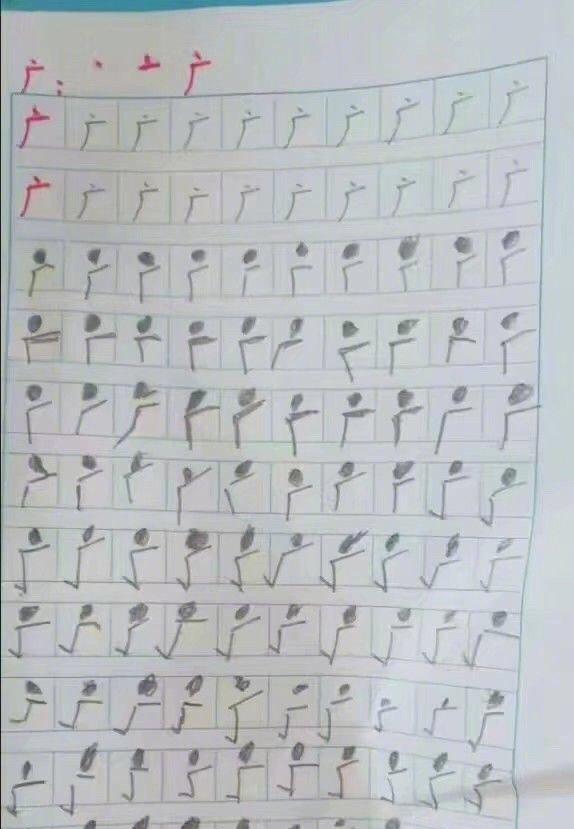 广: 丶 亠 广
广 广 广 广 广 广 广 广 广 广
广 广 广 广 广 广 广 广 广 广
广 广 广 广 广 广 广 广 广 广
广 广 广 广 广 广 广 广 广 广
广 广 广 广 广 广 广 广 广 广
广 广 广 广 广 广 广 广 广 广
广 广 广 广 广 广 广 广 广 广
广 广 广 广 广 广 广 广 广 广
广 广 广 广 广 广 广 广 广 广
广 广 广 广 广 广 广 广 广 广